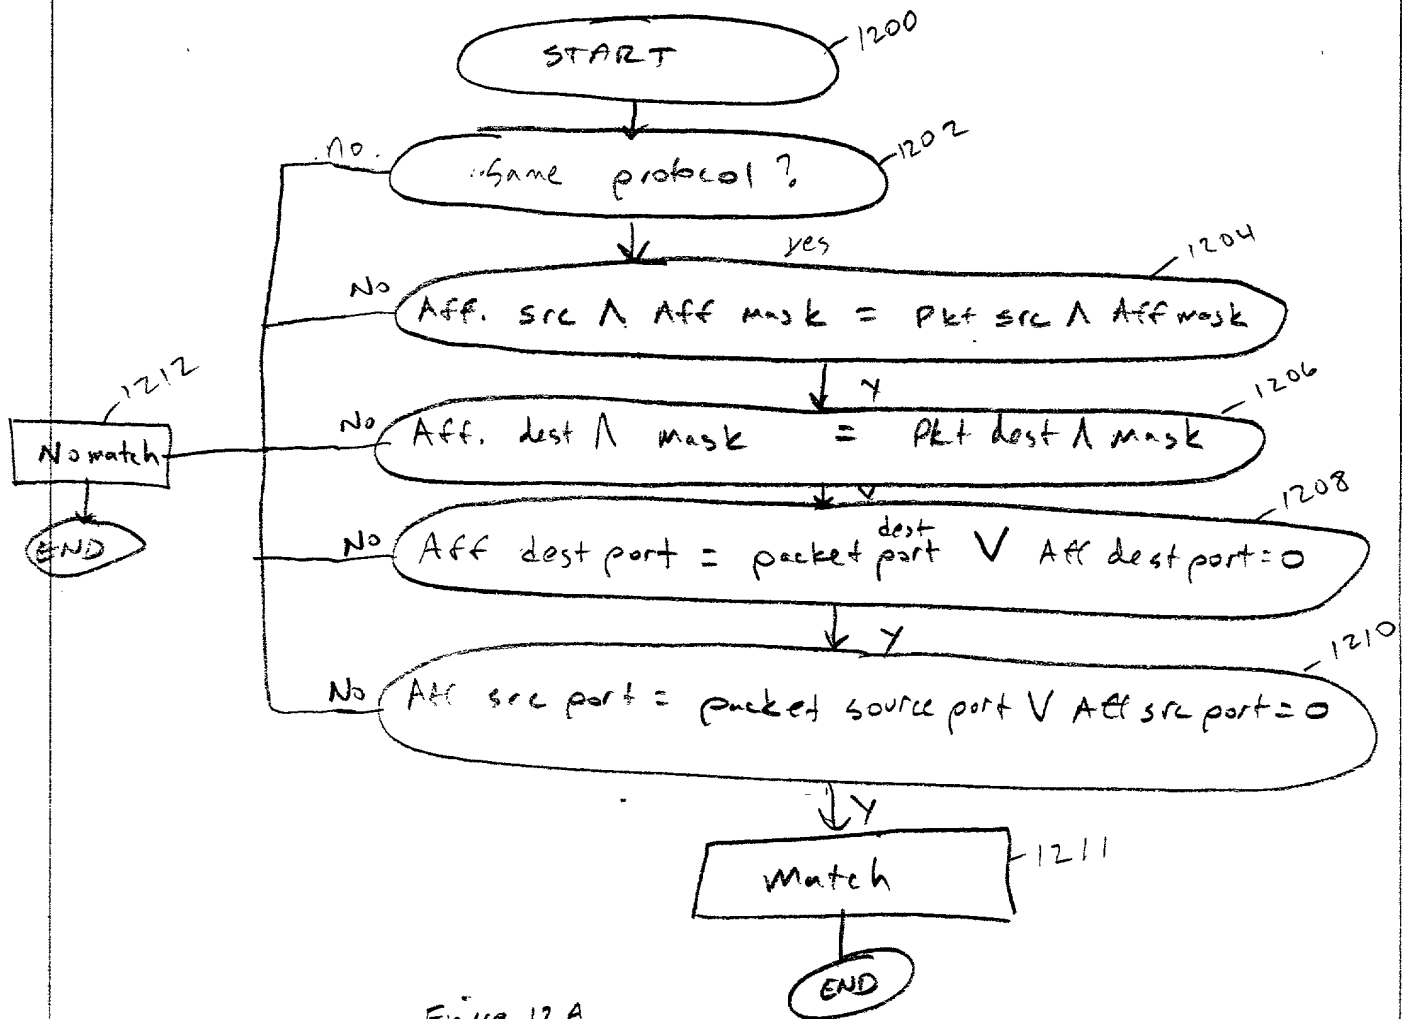 START
1200
no.
Same protocol?
1202
yes
1204
No
Aff. src Λ Aff mask = Pkt src Λ Aff mask
1212
Y
1206
No
Aff. dest Λ mask = Pkt dest Λ mask
No match
Y
1208
END
No
Aff dest port = packet dest port V Aff dest port=0
Y
1210
No
Aff src port = packet source port V Aff src port=0
Y
Match
1211
END
Figure 12A